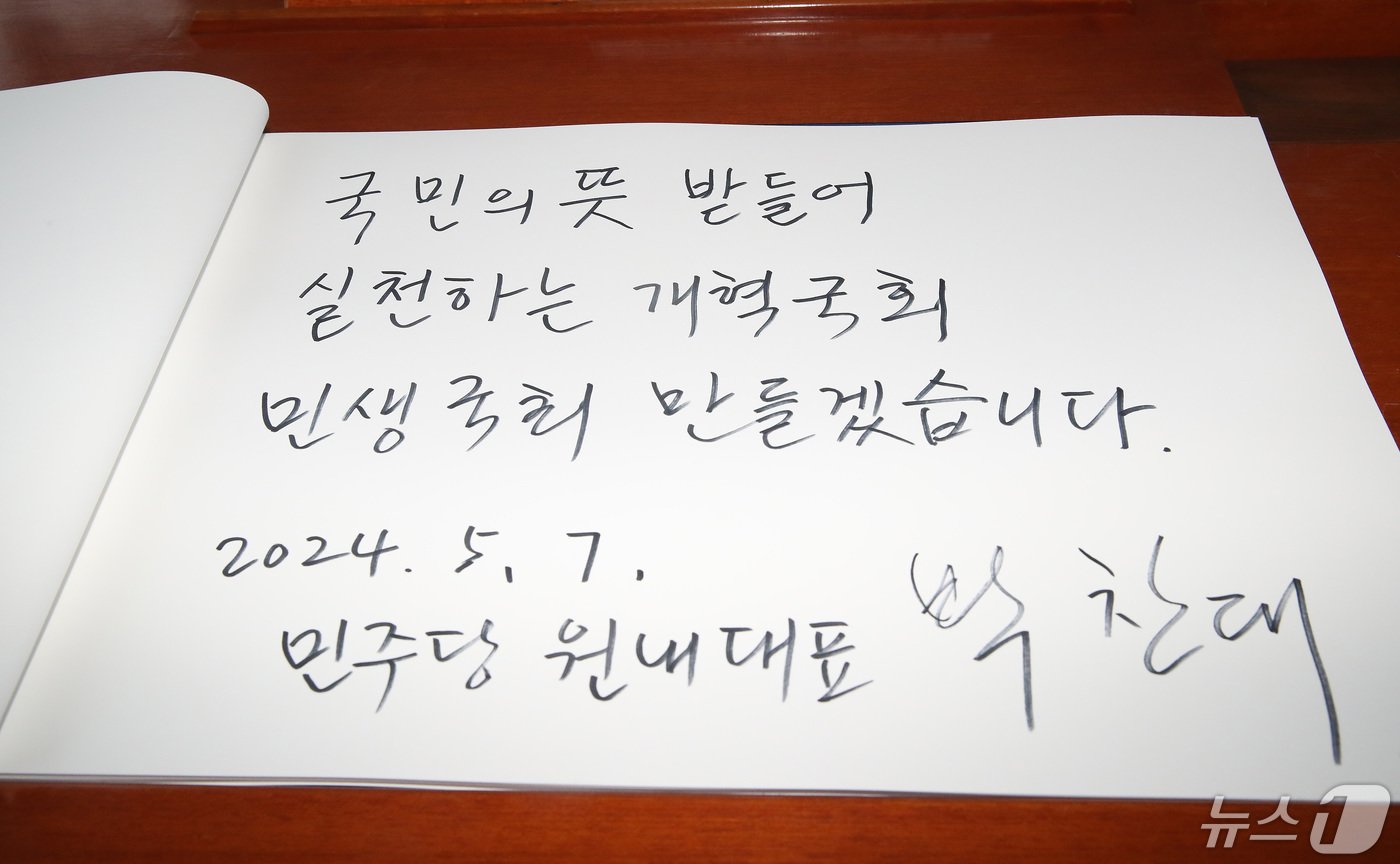 국민의 뜻 받들어
실천하는 개혁국회
민생국회 만들겠습니다.
2024. 5. 7.
민주당 원내대표 박찬대
뉴스1